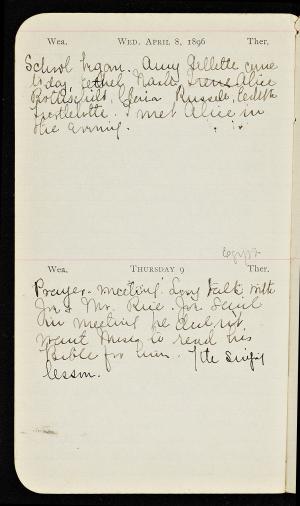 Wea. WED. APRIL 8, 1896 Ther.
School began. Amy Gillette came
to day, Ethel Nash, Irene Alice
Rothschild, Russell, Edith
I met Alice in
the evening.
Wea. THURSDAY 9 Ther.
Prayer-meeting. Long talk with
Jn. & Mr. Rice. Jn. said
in meeting he did not
want Missy to read his
Bible for him. 7th singing
lesson.